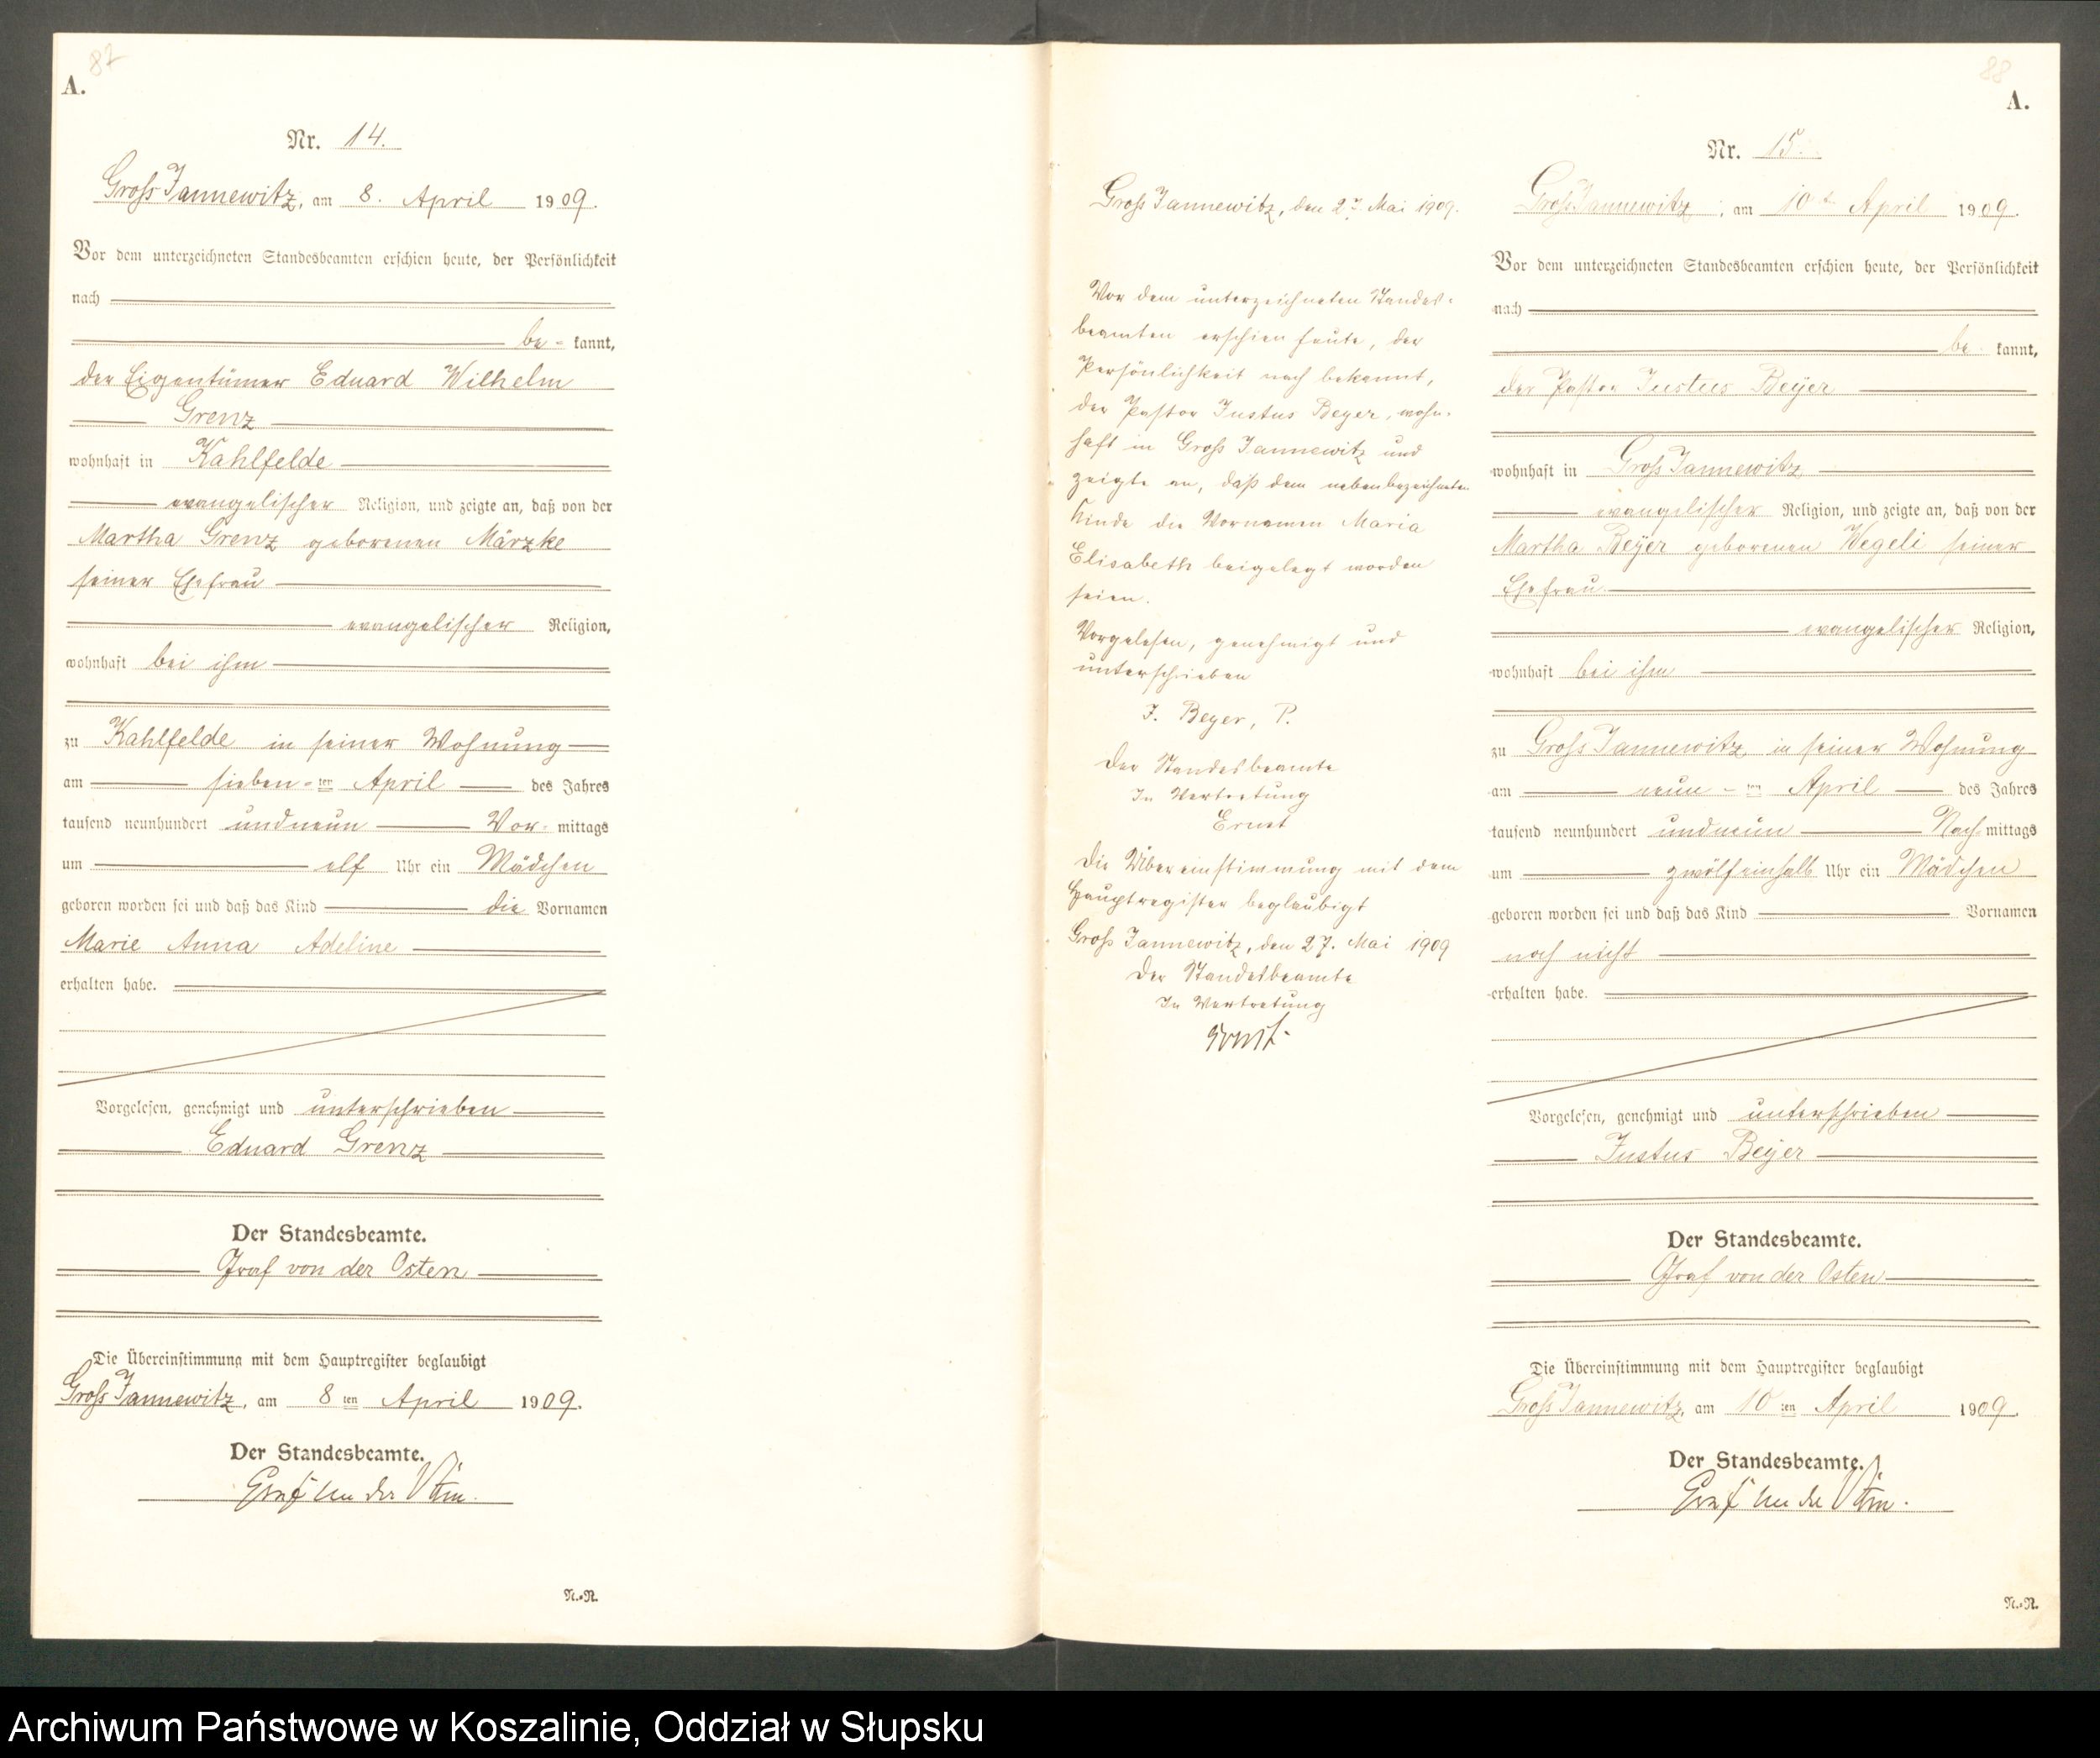 82
A.
Nr. 14.
Gross Jannewitz, am 8. April 1909.
Vor dem unterzeichneten Standesbeamten erschien heute, der Persönlichkeit
nach
be- kannt,
der Eigentümer Eduard Wilhelm
Grenz
wohnhaft in Kahlfelde
evangelischer Religion, und zeigte an, daß von der
Martha Grenz geborenen Märzke
seiner Ehefrau
evangelischer Religion,
wohnhaft bei ihm
zu Kahlfelde in seiner Wohnung
am sieben-ten April des Jahres
tausend neunhundert undneun Vor-mittags
um elf Uhr ein Mädchen
geboren worden sei und daß das Kind die Vornamen
Marie Anna Adeline
erhalten habe.
Vorgelesen, genehmigt und unterschrieben
Eduard Grenz
Der Standesbeamte.
Graf von der Osten
Die Übereinstimmung mit dem Hauptregister beglaubigt
Gross Jannewitz, am 8ten April 1909.
Der Standesbeamte.
Graf von der Osten.
N.-R.
Gross Jannewitz, den 27. Mai 1909.
Vor dem unterzeichneten Standes-
beamten erschien heute, der
Persönlichkeit nach bekannt,
der Pastor Justus Beyer, wohn-
haft in Gross Jannewitz und
zeigte an, daß dem nebenbezeichneten
Kinde die Vornamen Maria
Elisabeth beigelegt worden
seien.
Vorgelesen, genehmigt und
unterschrieben
J. Beyer, P.
Der Standesbeamte
In Vertretung
Ernst
Die Übereinstimmung mit dem
Hauptregister beglaubigt
Gross Jannewitz, den 27. Mai 1909
Der Standesbeamte
In Vertretung
Ernst.
88
A.
Nr. 15.
Gross Jannewitz, am 10t April 1909.
Vor dem unterzeichneten Standesbeamten erschien heute, der Persönlichkeit
nach
be- kannt,
der Pastor Justus Beyer
wohnhaft in Gross Jannewitz
evangelischer Religion, und zeigte an, daß von der
Martha Beyer geborenen Wegeli seiner
Ehefrau
evangelischer Religion,
wohnhaft bei ihm
zu Gross Jannewitz in seiner Wohnung
am neun-ten April des Jahres
tausend neunhundert undneun Nach-mittags
um zwölfeinhalb Uhr ein Mädchen
geboren worden sei und daß das Kind Vornamen
noch nicht
erhalten habe.
Vorgelesen, genehmigt und unterschrieben
Justus Beyer
Der Standesbeamte.
Graf von der Osten
Die Übereinstimmung mit dem Hauptregister beglaubigt
Gross Jannewitz, am 10ten April 1909.
Der Standesbeamte.
Graf von der Osten.
N.-R.
Archiwum Państwowe w Koszalinie, Oddział w Słupsku